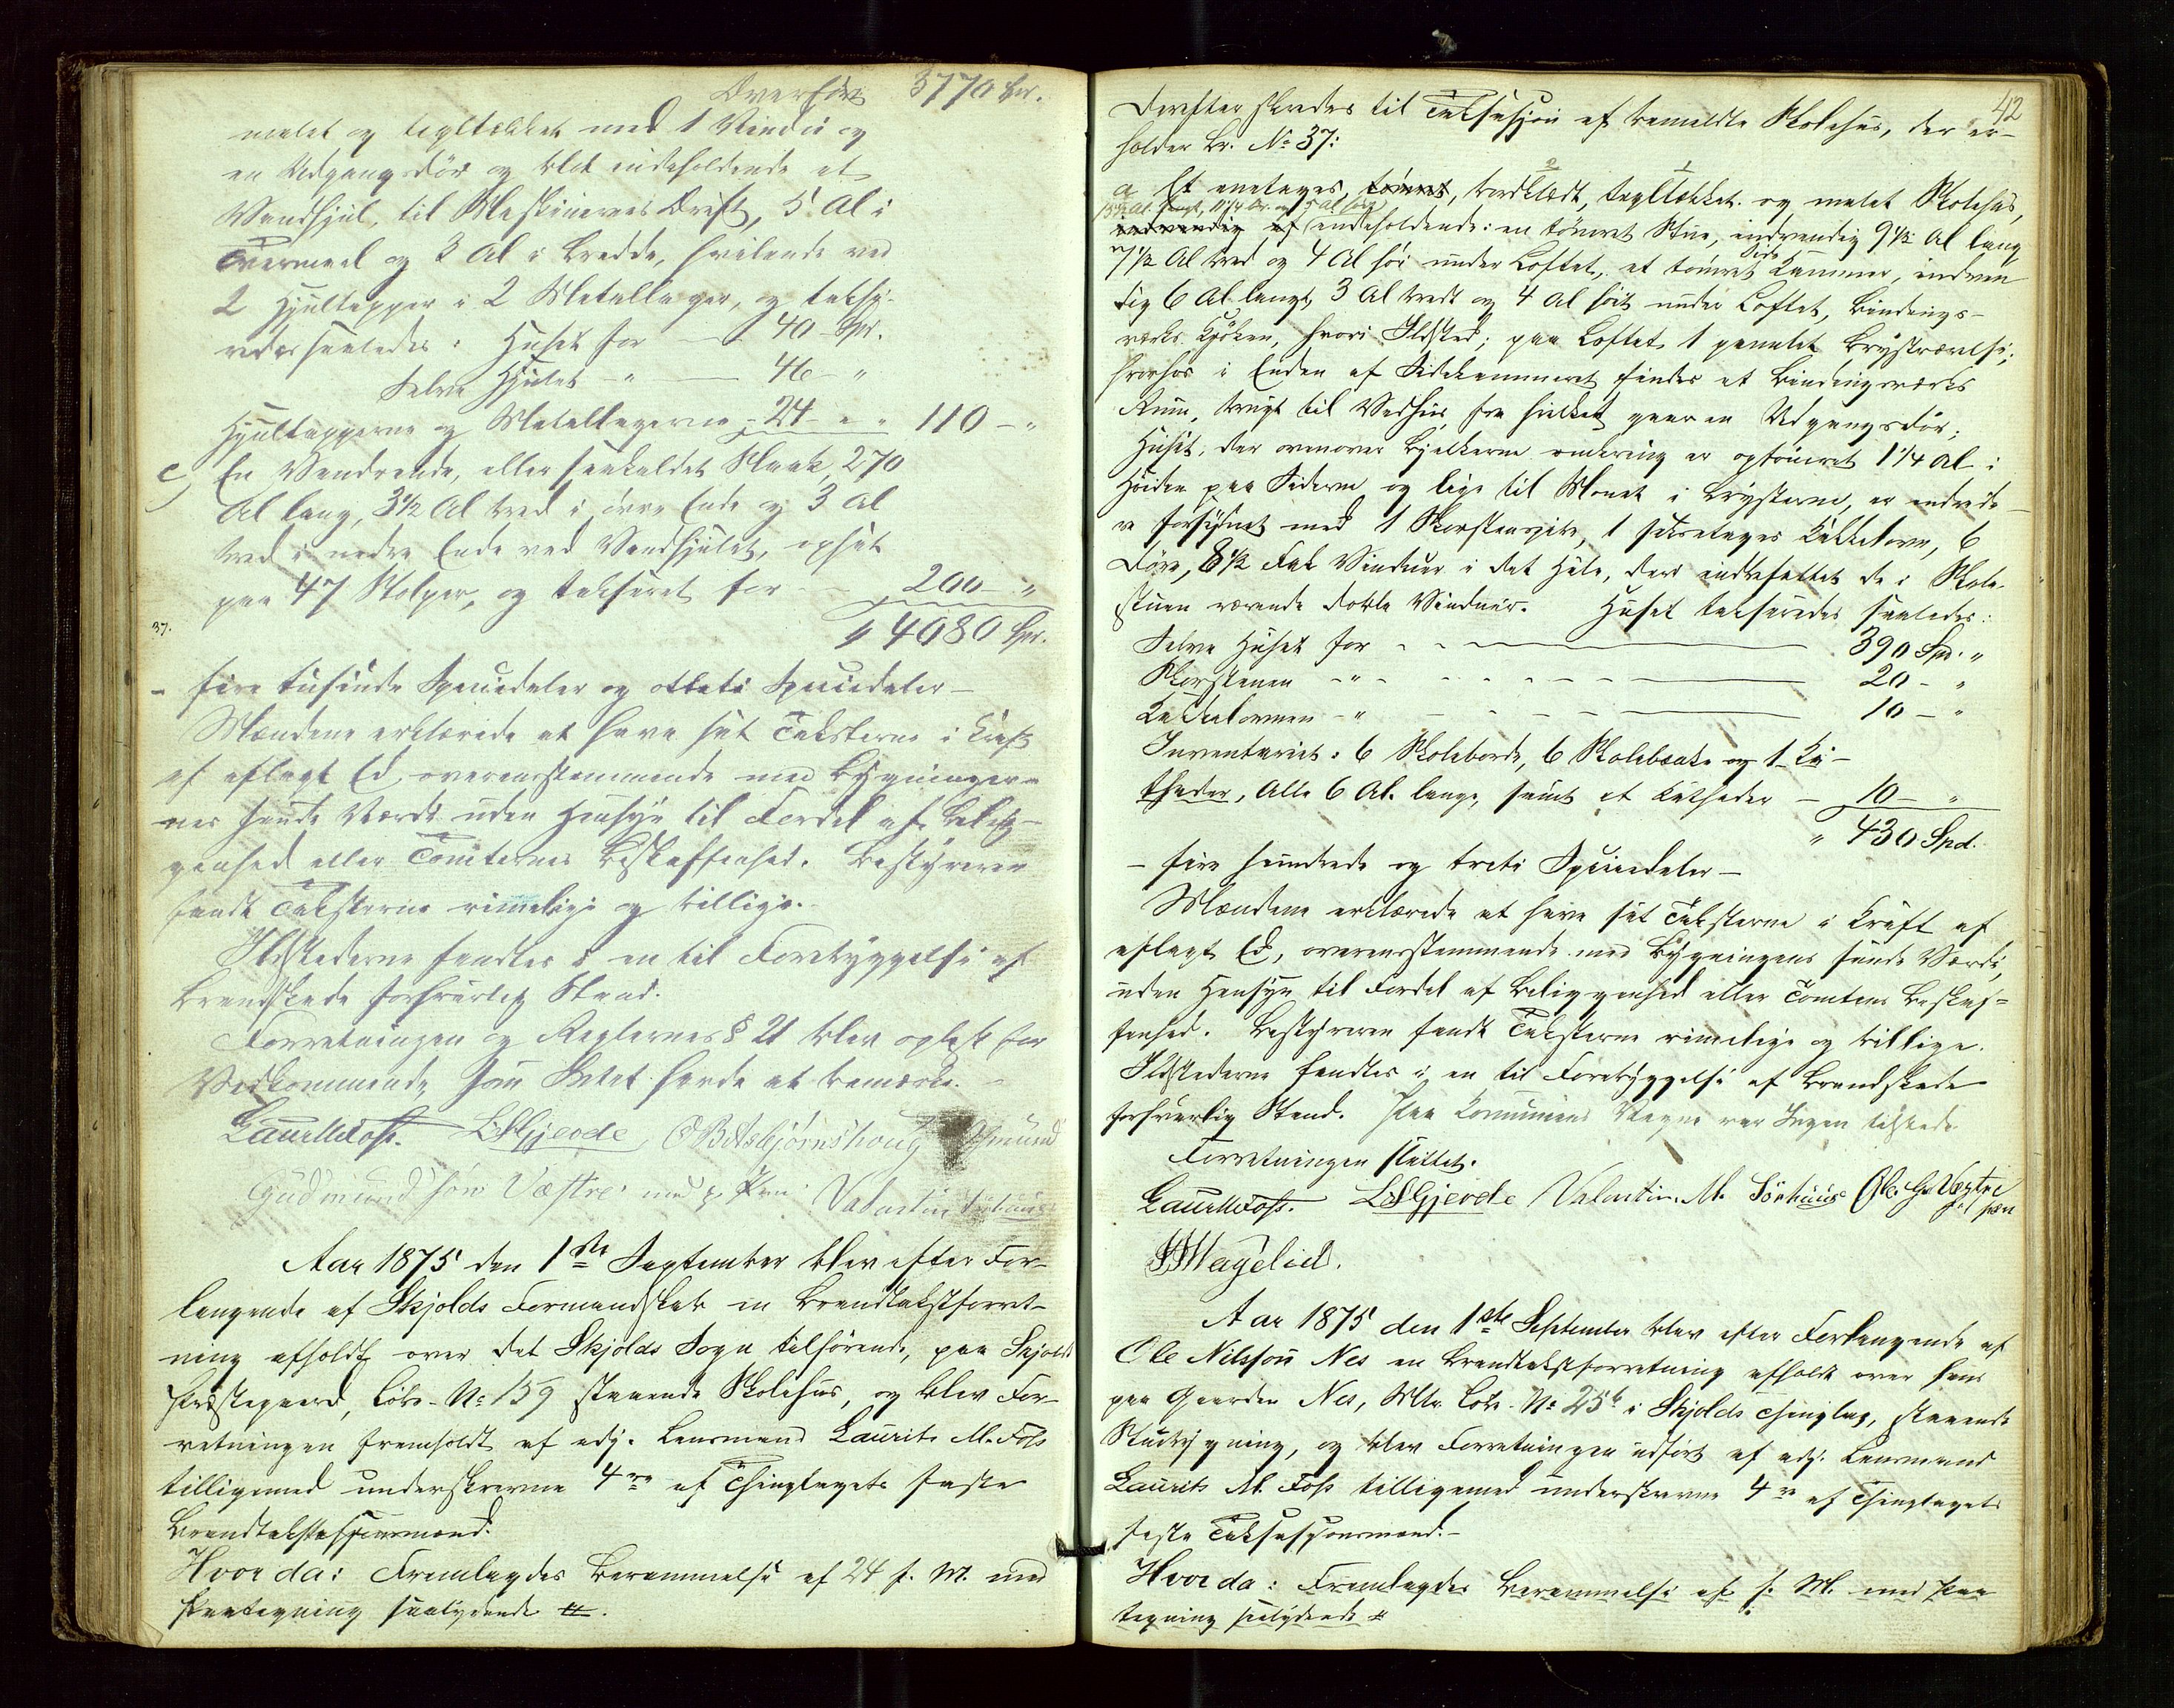 Overført 3770 Spd.
malet og tegltækket med 1 Vindu og
en Udgangsdør og blot indeholdende et
Vandhjul, til Maskinernes Drift, 5 Al i
Tvermaal og 3 Al i Bredde, hvilende ved
2 Hjultapper i 2 Metallager, og taksе-
redes saaledes: Huset for — 40 - Spd.
Selve Hjulet - " — 46 - "
Hjultapperne og Metallagerne - 24 - " 110 - "
c, En Vandrende, eller saakaldet Slaak, 270
Al lang, 3 1/2 Al bred i øvre Ende og 3 Al
bred i nedre Ende ved Vandhjulet, opsat
paa 47 Stolper, og takseret for — 200 - "
37. " 4080 Spd.
- fire tusinde Speciedaler og otteti Speciedaler -
Mændene erklærede at have sat Taksterne i Kraft
af aflagt Ed, overensstemmende med Bygninger-
nes sande Værdi uden Hensyn til Fordel af Belig-
genhed eller Tomternes Beskaffenhed. Bestyreren
fandt Taksterne rimelige og billige.
Ildstederne fandtes i en til Forebyggelse af
Brandskade forsvarlig Stand.
Forretningen og Reglernes § 21 blev oplæst for
Vedkommende, som Intet havde at bemærke. -
Laur M Foss. LSGjerde, O B Asbjørnshoug Osmund
Gudmundsøn Væstre med p. Pen. Valentin Sørhuus
Aar 1875 den 1ste September blev efter For-
langende af Skjolds Formandskab en Brandtakstforret-
ning afholdt over det Skjolds Sogn tilhørende, paa Skjolds
Præstegaard, Løbe-No 159 staaende Skolehus, og blev For-
retningen fremholdt af adj. Lensmand Laurits M. Foss
tilligemed underskrevne 4re af Thinglagets faste
Brandtakstationsmænd.
Hvorda: Fremlagdes Berammelse af 24 f. M. med
Paategning saalydende #.
42
Derefter skredes til Taksasjon af bemeldte Skolehus, der er-
holder Br. No 37:
a Et enetages, tømret, bordklædt, tegltækket og malet Skolehus,
15 1/2 Al. langt, 11 1/4 br. og 5 Al høit
indvendig af indeholdende: en tømret Stue, indvendig 9 1/2 Al lang
7 1/2 Al bred og 4 Al høi under Loftet, et tømret Side Kammer, indven
dig 6 Al langt, 3 Al bredt og 4 Al høit under Loftet, Bindings-
værks Kjøken, hvori Ildsted; paa Loftet 1 panelet Brystværelse;
hvorhos i Enden af Sidekammeret findes et Bindingsværks
Rum, brugt til Vedhus, fra hvilket gaar en Udgangsdør;
Huset, der ovenover Bjelkerne omkring er optømret 1 1/4 Al i
Høiden paa Siderne og lige til Mønet i Brysterne, er endvide-
re forsynet med 1 Skorstenspibe, 1 toetages Kakkelovn, 6
Døre, 8 1/2 Fak Vinduer i det Hele, deri indbefattet de i Skole-
stuen værende dobbe Vinduer. Huset takseredes saaledes:
Selve Huset for - - — 390 Spd. "
Skorstenen - " - - - - — 20 - "
Kakkelovnen - " — - - — 10 - "
Inventariet: 6 Skoleborde, 6 Skolebænke og 1 Ka-
theder, Alle 6 Al. lange, samt et Katheder — 10 - "
" 430 Spd.
- fire hundrede og treti Speciedaler -
Mændene erklærede at have sat Taksterne i Kraft af
aflagt Ed, overensstemmende med Bygningens sande Værdi,
uden Hensyn til Fordel af Beliggenhed eller Tomtens Beskaf-
fenhed. Bestyreren fandt Taksterne rimelige og billige.
Ildstederne fandtes i en til Forebyggelse af Brandskade
forsvarlig Stand. Paa Komunens Vegne var Ingen tilstede
Forretningen sluttet.
Laur M Foss. LSGjerde Valentin. M. Sørhuus Ole G. Væstre
Pen
Magelied.
Aar 1875 den 1ste September blev efter Forlangende af
Ole Nilsson Nes en Brandtakstforretning afholdt over hans
paa Gaarden Nes, Mtr. Løbe-No 25b i Skjolds Thinglag, staaende
Stuebygning, og blev Forretningen udført af adj. Lensmand
Laurits M. Foss tilligemed underskrevne 4re af Thinglagets
faste Taksasjonsmænd. -
Hvorda: Fremlagdes Berammelse af f. M. med Paa
tegning saalydende #